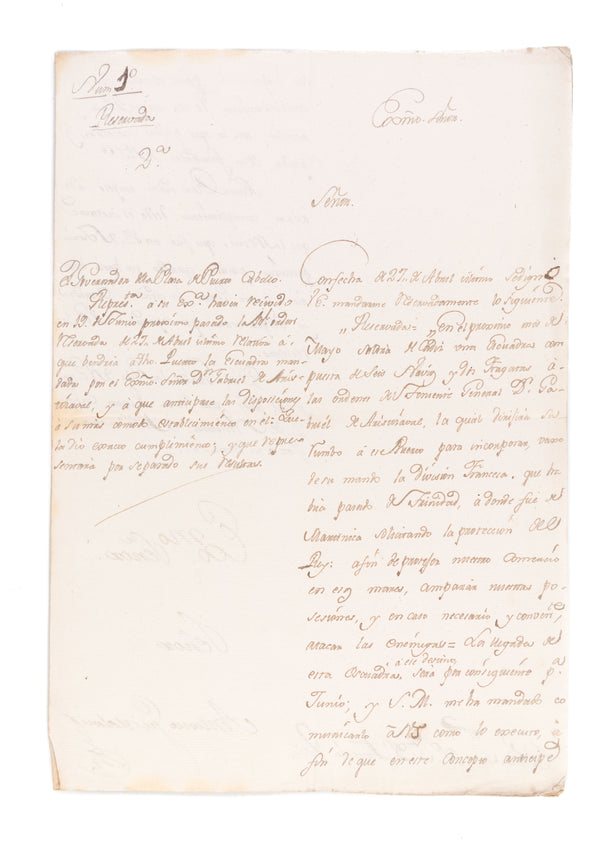 Num. 1º
Reservada
2ª
Exmo. Señor.
Señor.
El Governador de la Plaza de Puerto Cabello.
Represta. á su Exª havia recivido
en 19. de Junio proximo pasado la Rl. orden
Reservada de 27. de Abril ultimo relativa á
que vendria á dho Puerto la Escuadra man-
dada por el Exmo. Señor Dn. Gabriel de Aris-
tizaval, y á que anticipase las disposiciones
á
dio exacto cumplimiento; y que repre-
sentara por separado sus resultas.
Con fecha de 27. de Abril ultimo se dignó
V.E. mandarme Reservadamente lo siguiente.
"Reservada= "en el proximo mes de
Mayo saldrá de Cadiz una Escuadra com-
puesta de Seis Navios y dos Fragatas á
las ordenes del Teniente General Dn. Ga-
briel de Aristizaval, la qual dirigirá su
rumbo á ese Puerto para incorporar, vaxo
de su mando la división Francesa, que ha-
bia pasado de Trinidad, á donde fue de
Martinica solicitando la protección del
Rey: afin de proteger nuestro Comercio
en esos mares, amparar nuestras po-
sesiones, y en caso necesario y convente.
atacar las enemigas= La llegada de
esta Escuadra á ese destino será por consiguiente pª.
Junio; y S. M. me ha mandado co-
municarlo á VS, como lo executo, á
fin de que en este concepto anticipe